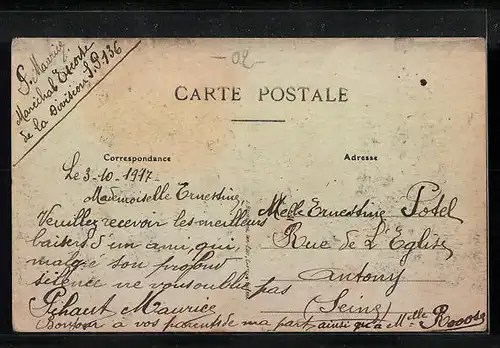 02
Maurice
Maréchal Escorte
de la Division S.P. 136
CARTE POSTALE
Correspondance
Adresse
Le 3-10-1917-
Mademoiselle Ernestine,
Veuillez recevoir les meilleurs
baisers d'un ami, qui,
malgré son profond
silence ne vous oublie pas
Maurice
Bonjour a vos parents de ma part, ainsi qu'a Melle
Melle Ernestine Potel
Rue de L'Eglise
Antony
(Seine)